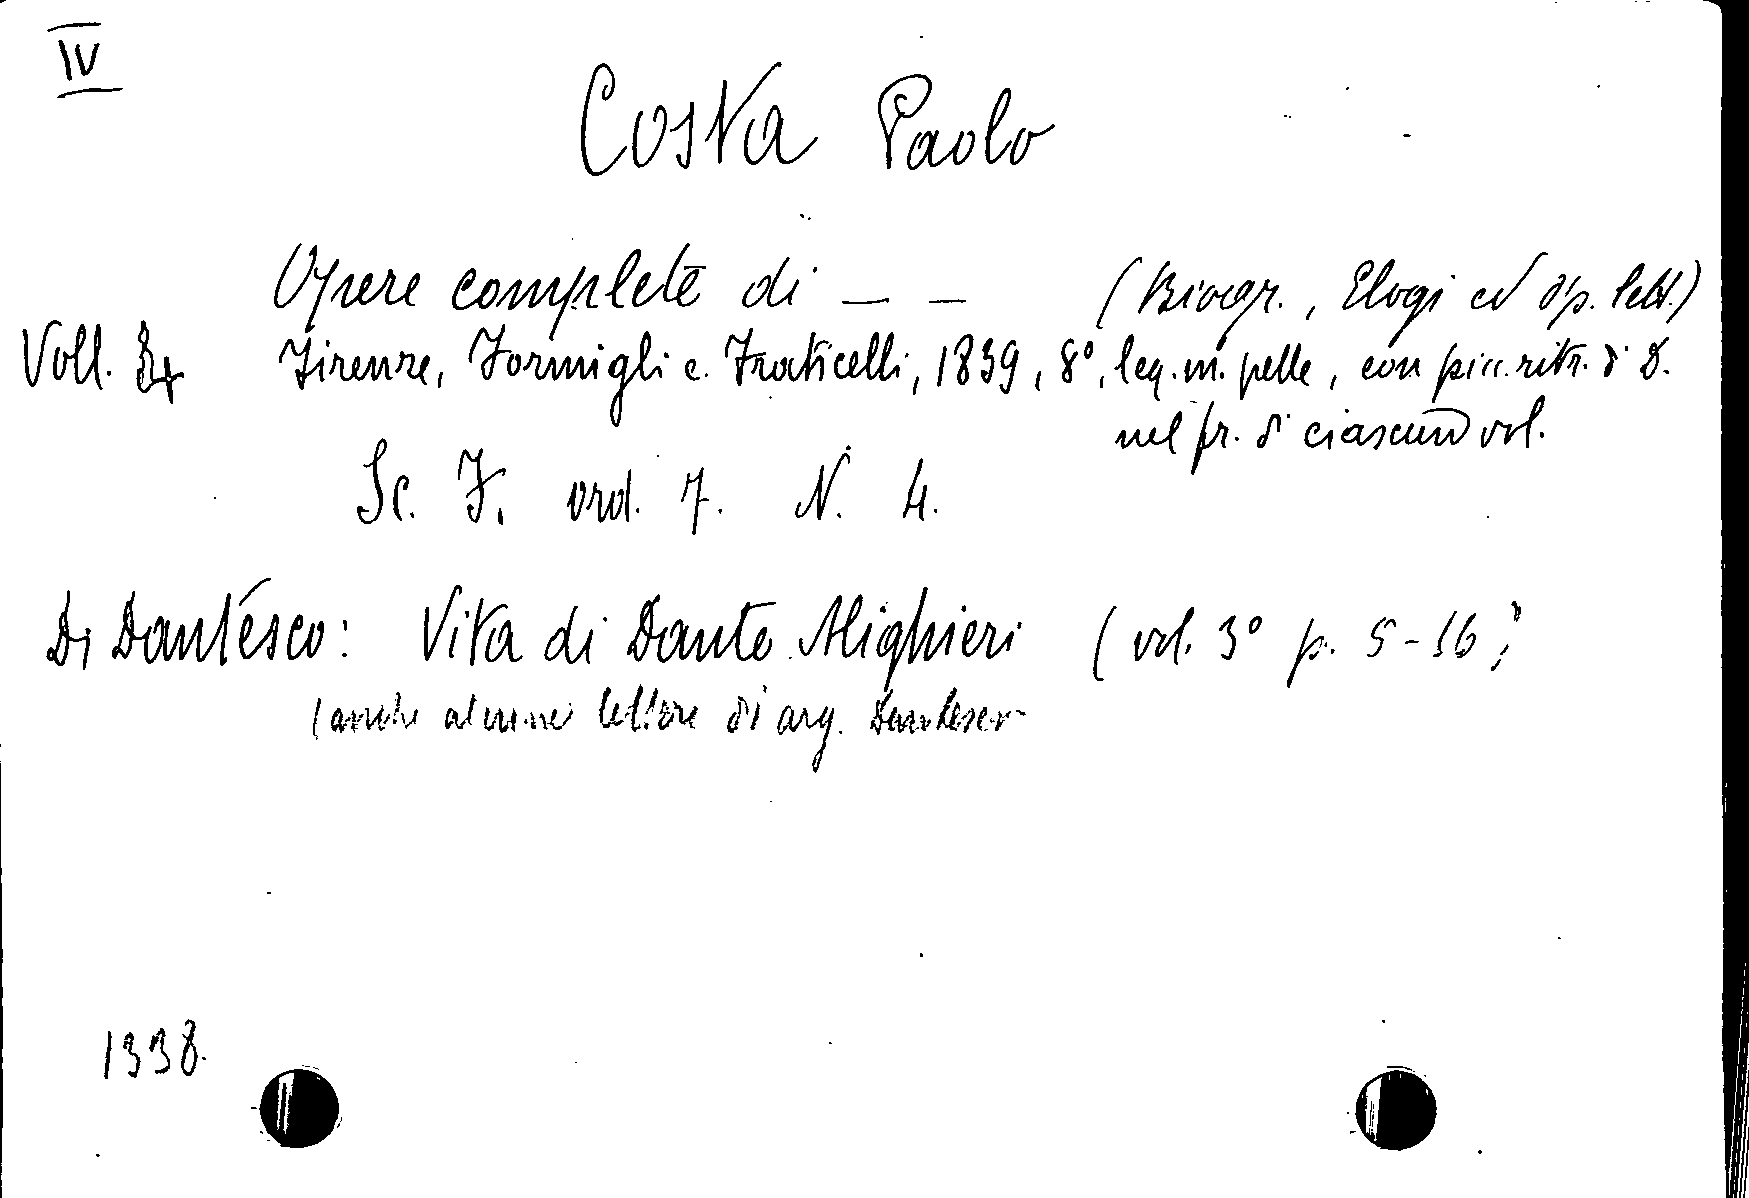 IV
Costa Paolo
Opere complete di — — (Biogr., Elogi ed op. lett.)
Voll. 4 Firenze, Formigli e Fraticelli, 1839, 8°, leg. m. pelle, con picc. ritr. di D.
nel fr. di ciascun vol.
Sc. F. ord. 7. N. 4.
Di Dantesco: Vita di Dante Alighieri (vol. 3° p. 5-56;
(anche alcune lettere di arg. Dantesco
1338.